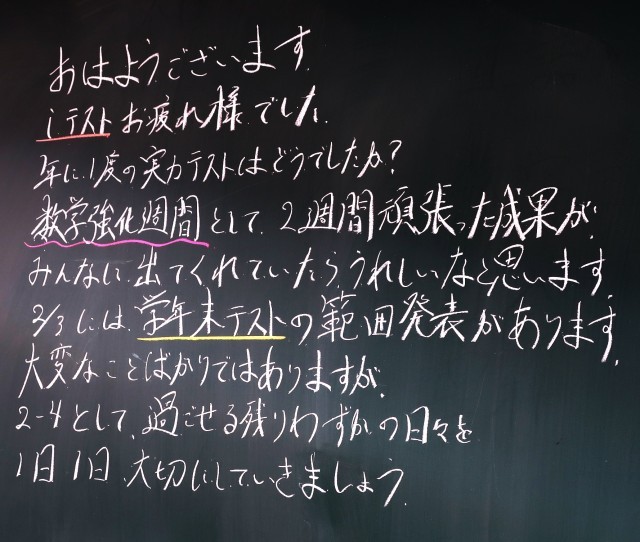 おはようございます.
iテストお疲れ様でした.
年に1度の実力テストはどうでしたか?
数学強化週間として、2週間頑張った成果が、
みんなに出てくれていたらうれしいなと思います.
2/3には、学年末テストの範囲発表があります.
大変なことばかりではありますが、
2-4として、過ごせる残りわずかの日々を
1日1日、大切にしていきましょう.